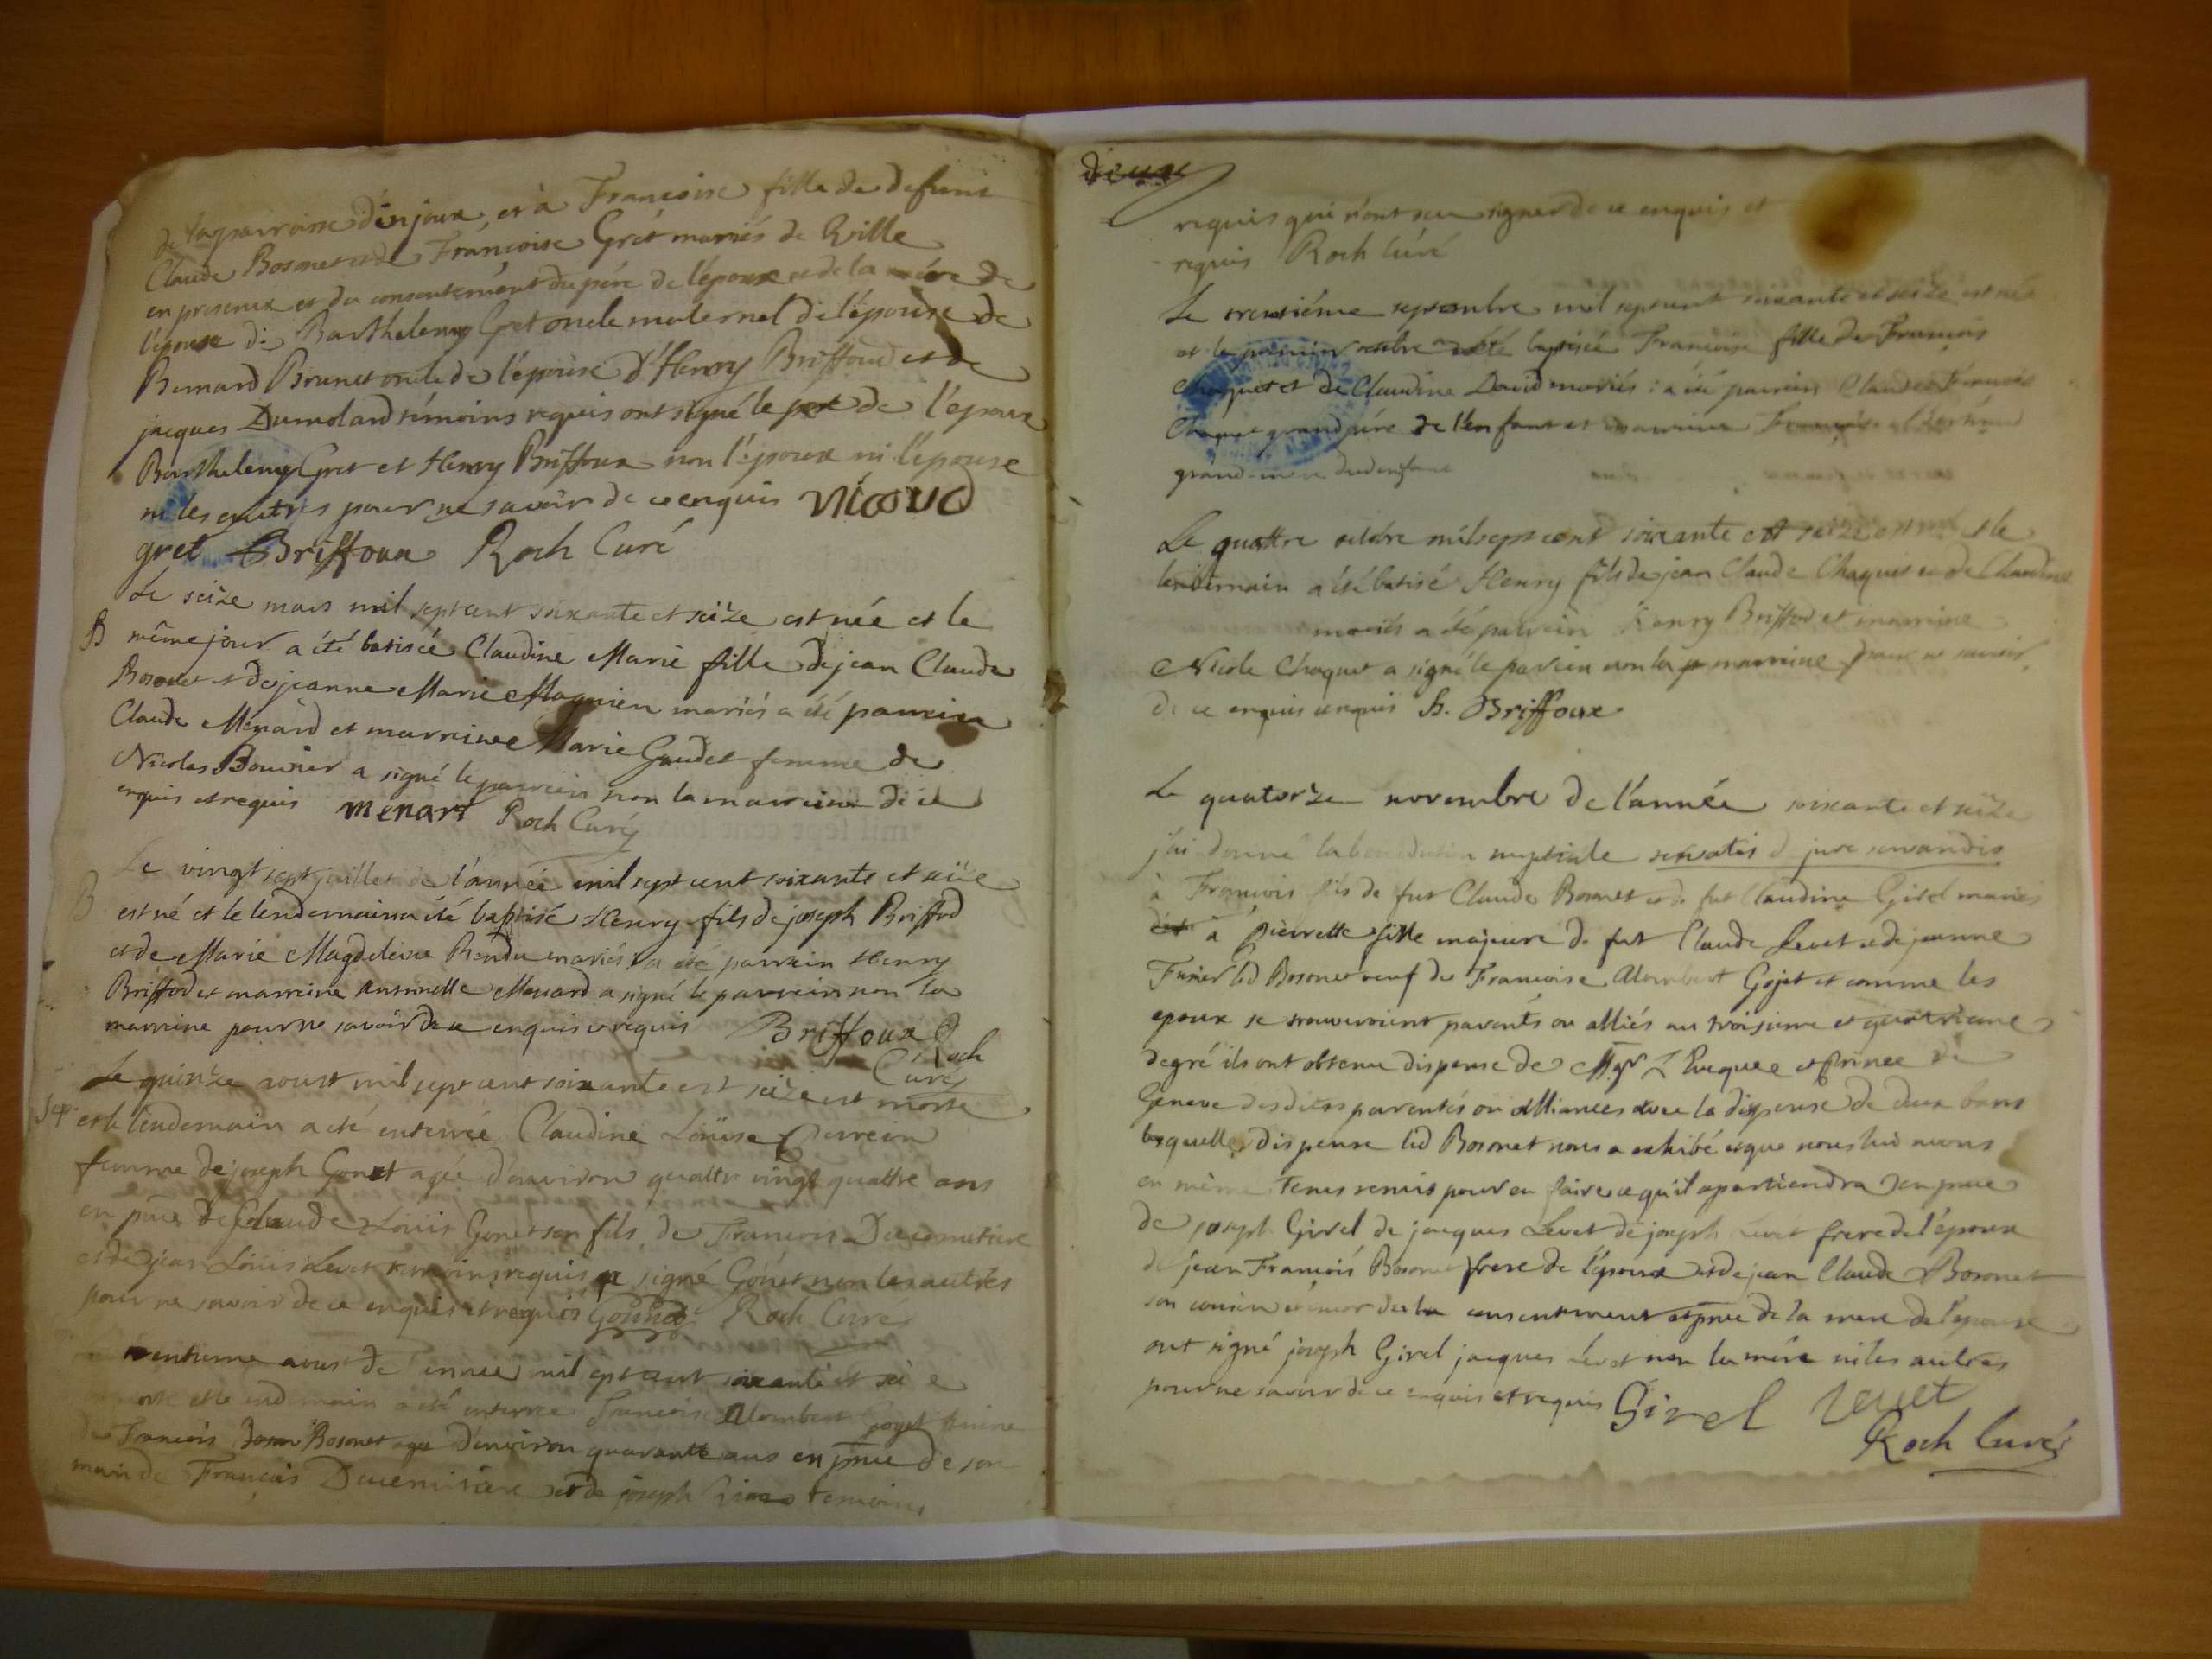 de la parroisse d'injoux, et à Francoise fille de defunt
Claude Bosonet et de Francoise Gret mariés de Ville
en presence et du consentement du pére de l'époux et de la mére de
l'épouse de Barthelemy Gret oncle maternel de l'épouse de
Bernard Brunet oncle de l'épouse d'Henry Briffoud et de
jacques Dumolard témoins requis ont signé le pere de l'époux
Barthelemy Gret et Henry Briffoux non l'époux ni l'épouse
ni les autres pour ne savoir de ce enquis Nicoud
gret Briffoux Roch Curé
Le seize mars mil sept cent soixante et seize est née et le
B même jour a été batisée Claudine Marie fille de jean Claude
Bosonet et de jeanne Marie Magnien mariés a été parrein
Claude Menard et marreine Marie Gaudet femme de
Nicolas Bouvier a signé le parrein non la marreine de ce
enquis et requis menart Roch Curé
Le vingt sept juillet de l'année mil sept cent soixante et seize
B est né et le lendemain a été baptisé Henry fils de joseph Briffod
et de Marie Magdeleine Rendu mariés: a été parrain Henry
Briffod et marreine Menard a signé le parrein non la
marreine pour ne savoir de ce enquis et requis Briffoux
Roch
Curé
Le quinze aoust mil sept cent soixante est seize est morte
Sep. et le lendemain a été enterrée Claudine Loüise Perrein
femme de joseph Gonet agée d'environ quattre vingt quattre ans
en pnce de Claude Loüis Gonet son fils, de Francois Ducimetiere
et de jean Loüis Levet témoins requis a signé Gonet non les autres
pour ne savoir de ce enquis et requis Gonned Roch Curé
trentieme aoust de année mil sept cent soixante et seize
morte et le lendemain a été enterree Francoise Alombert Gojet femme
de Francois Bosonet agée d'environ quarante ans en pnce de son
mari de Francois Ducimitiere et de joseph temoins
dieux
requis qui n'ont seu signer de ce enquis et
requis Roch Curé
Le trentiéme septembre mil sept cent soixante et seize est née
et le premier octobre a été baptisée Francoise fille de Francois
Chaquet et de Claudine David mariés: a été parrein Claude Francois
Chaquet grand pére de l'enfant et marreine
grand-mere dud enfant
Le quattre octobre mil sept cent soixante et seize est né et le
lendemain a été batisé Henry fils de jean Claude Chaquet et de Claudine
mariés a été parrein Henry Briffod et marreine
Nicole Chaquet a signé le parrein non la marreine pour ne savoir
de ce enquis et requis h. Briffoux
Le quatorze novembre de l'année soixante et seize
j'ai donné la benediction nuptiale servatis de jure servandis
à Francois fils de fut Claude Bosonet et de fut Claudine Girel mariés
et à Pierrette fille majeure de fut Claude Levet et de jeanne
led Bosonet veuf de Francoise Alombert Gojet et comme les
epoux se trouvoient parents ou alliés au troisieme et quatrieme
degré ils ont obtenu dispense de Mgr L'Evequee et Prince de
Geneve desdites parentés ou alliances avec la dispense de deux bans
lesquelles dispense led Bosonet nous a exhibé et que nous lui avons
en même tems remis pour en faire ce qu'il apartiendra en pnce
de joseph Girel de jacques Levet de joseph Levet frere de l'épouse
de jean Francois Bosonet frere de l'époux et de jean Claude Bosonet
son cousin consentement et pnce de la mere de l'epouse
ont signé joseph Girel jacques Levet non la mére ni les autres
pour ne savoir de ce enquis et requis Girel levet
Roch Curé